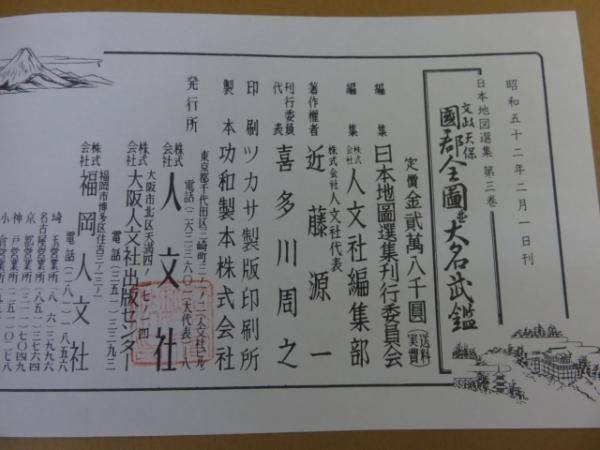 昭和五十二年二月一日刊
日本地図選集 第三巻
文政天保
國郡全圖並大名武鑑
定價金貳萬八千圓(送料実費)
編集 日本地圖選集刊行委員会
編集 株式会社 人文社編集部
株式会社人文社代表
著作權者 近藤源一
刊行委員代表 喜多川周之
印刷 ツカサ製版印刷所
製本 功和製本株式会社
発行所
東京都千代田区三崎町
株式会社 人文社
大阪市北区天満四ノ一七ノ一四
株式会社 大阪人文社出版センター
電話(三五一)三三九三
福岡市博多区住吉
株式会社 福岡人文社
電話(二八一)一八五六
埼玉営業所
名古屋営業所
京都営業所
神戸営業所
小倉営業所